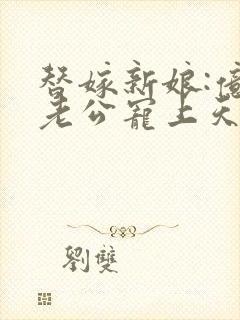 替嫁新娘:億
老公寵上天
劉雙